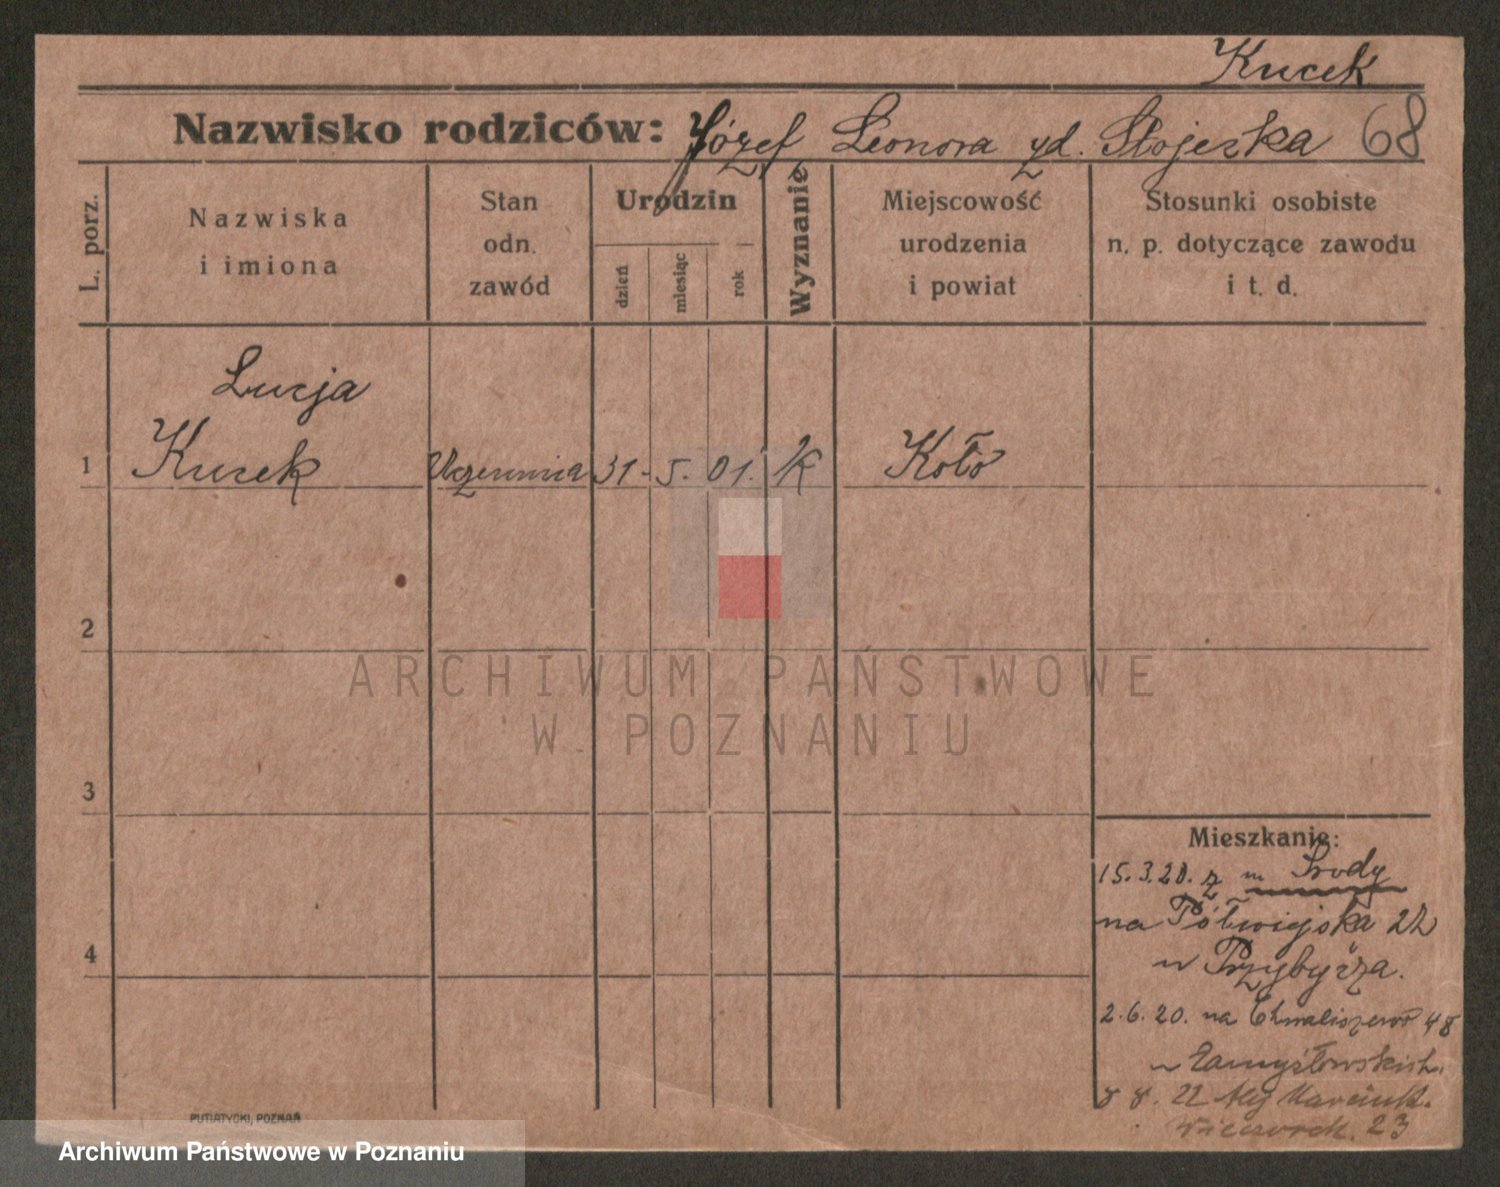 Kucek
Nazwisko rodziców: Józef Leonora zd. Stojerska 68
L. porz.
Nazwiska
i imiona
Stan
odn.
zawód
Urodzin
dzień
miesiąc
rok
Wyznanie
Miejscowość
urodzenia
i powiat
Stosunki osobiste
n. p. dotyczące zawodu
i t. d.
Łucja
1 Kucek Uczennica 31 - 5. 01. K Koło
2
ARCHIWUM PAŃSTWOWE
W POZNANIU
3
Mieszkanie:
15.3.20. z m. Środy
na Półwiejska 22
u Przybysza.
4
2.6.20. na Chwaliszewo 48
u Zamysłowskich.
8 8. 22 Marcink. 
23
PUTIATYCKI, POZNAŃ
Archiwum Państwowe w Poznaniu